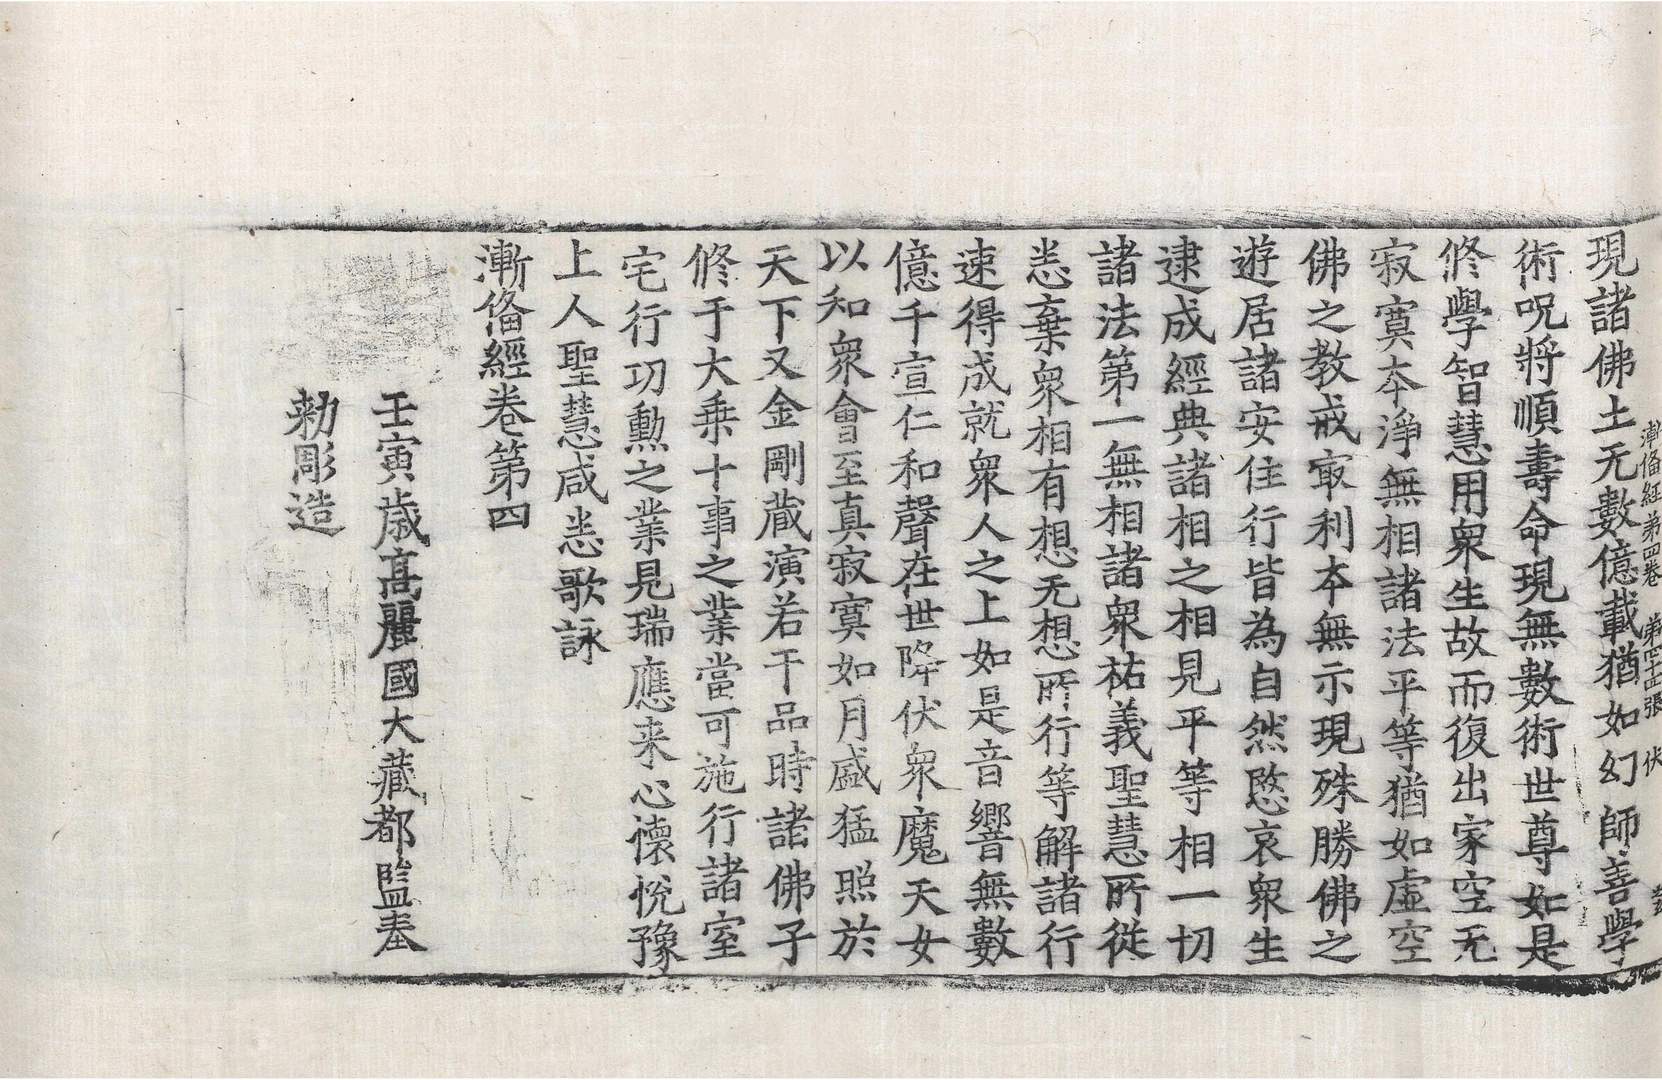 漸俻経第四卷　第四十四張　伏
現諸佛土无數億載猶如幻師善學
術呪將順壽命現無數術世尊如是
修學智慧用衆生故而復出家空无
寂寞本淨無相諸法平等猶如虛空
佛之教戒㝡利本無示現殊勝佛之
遊居諸安住行皆為自然愍哀衆生
逮成經典諸相之相見平等相一切
諸法第一無相諸衆祐義聖慧所從
悉棄衆相有想无想所行等解諸行
速得成就衆人之上如是音響無數
億千宣仁和聲在世降伏衆魔天女
以知衆會至真寂寞如月盛猛照於
天下又金剛藏演若干品時諸佛子
修于大乘十事之業當可施行諸室
宅行功勲之業見瑞應来心懷悅豫
上人聖慧咸悉歌詠
漸俻經卷第四
壬寅歲高麗國大藏都監奉
勅彫造